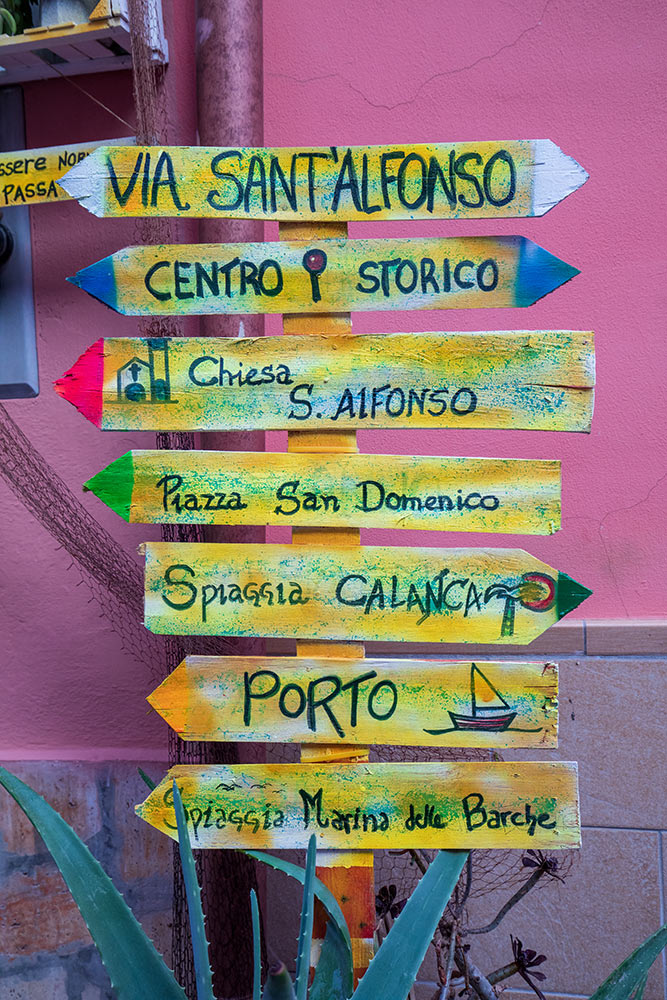 ssere NOR
PASSA
VIA SANT'ALFONSO
CENTRO STORICO
Chiesa
S. AlFONSO
Piazza San Domenico
Spiaggia CALANCA
PORTO
Spiaggia Marina delle Barche